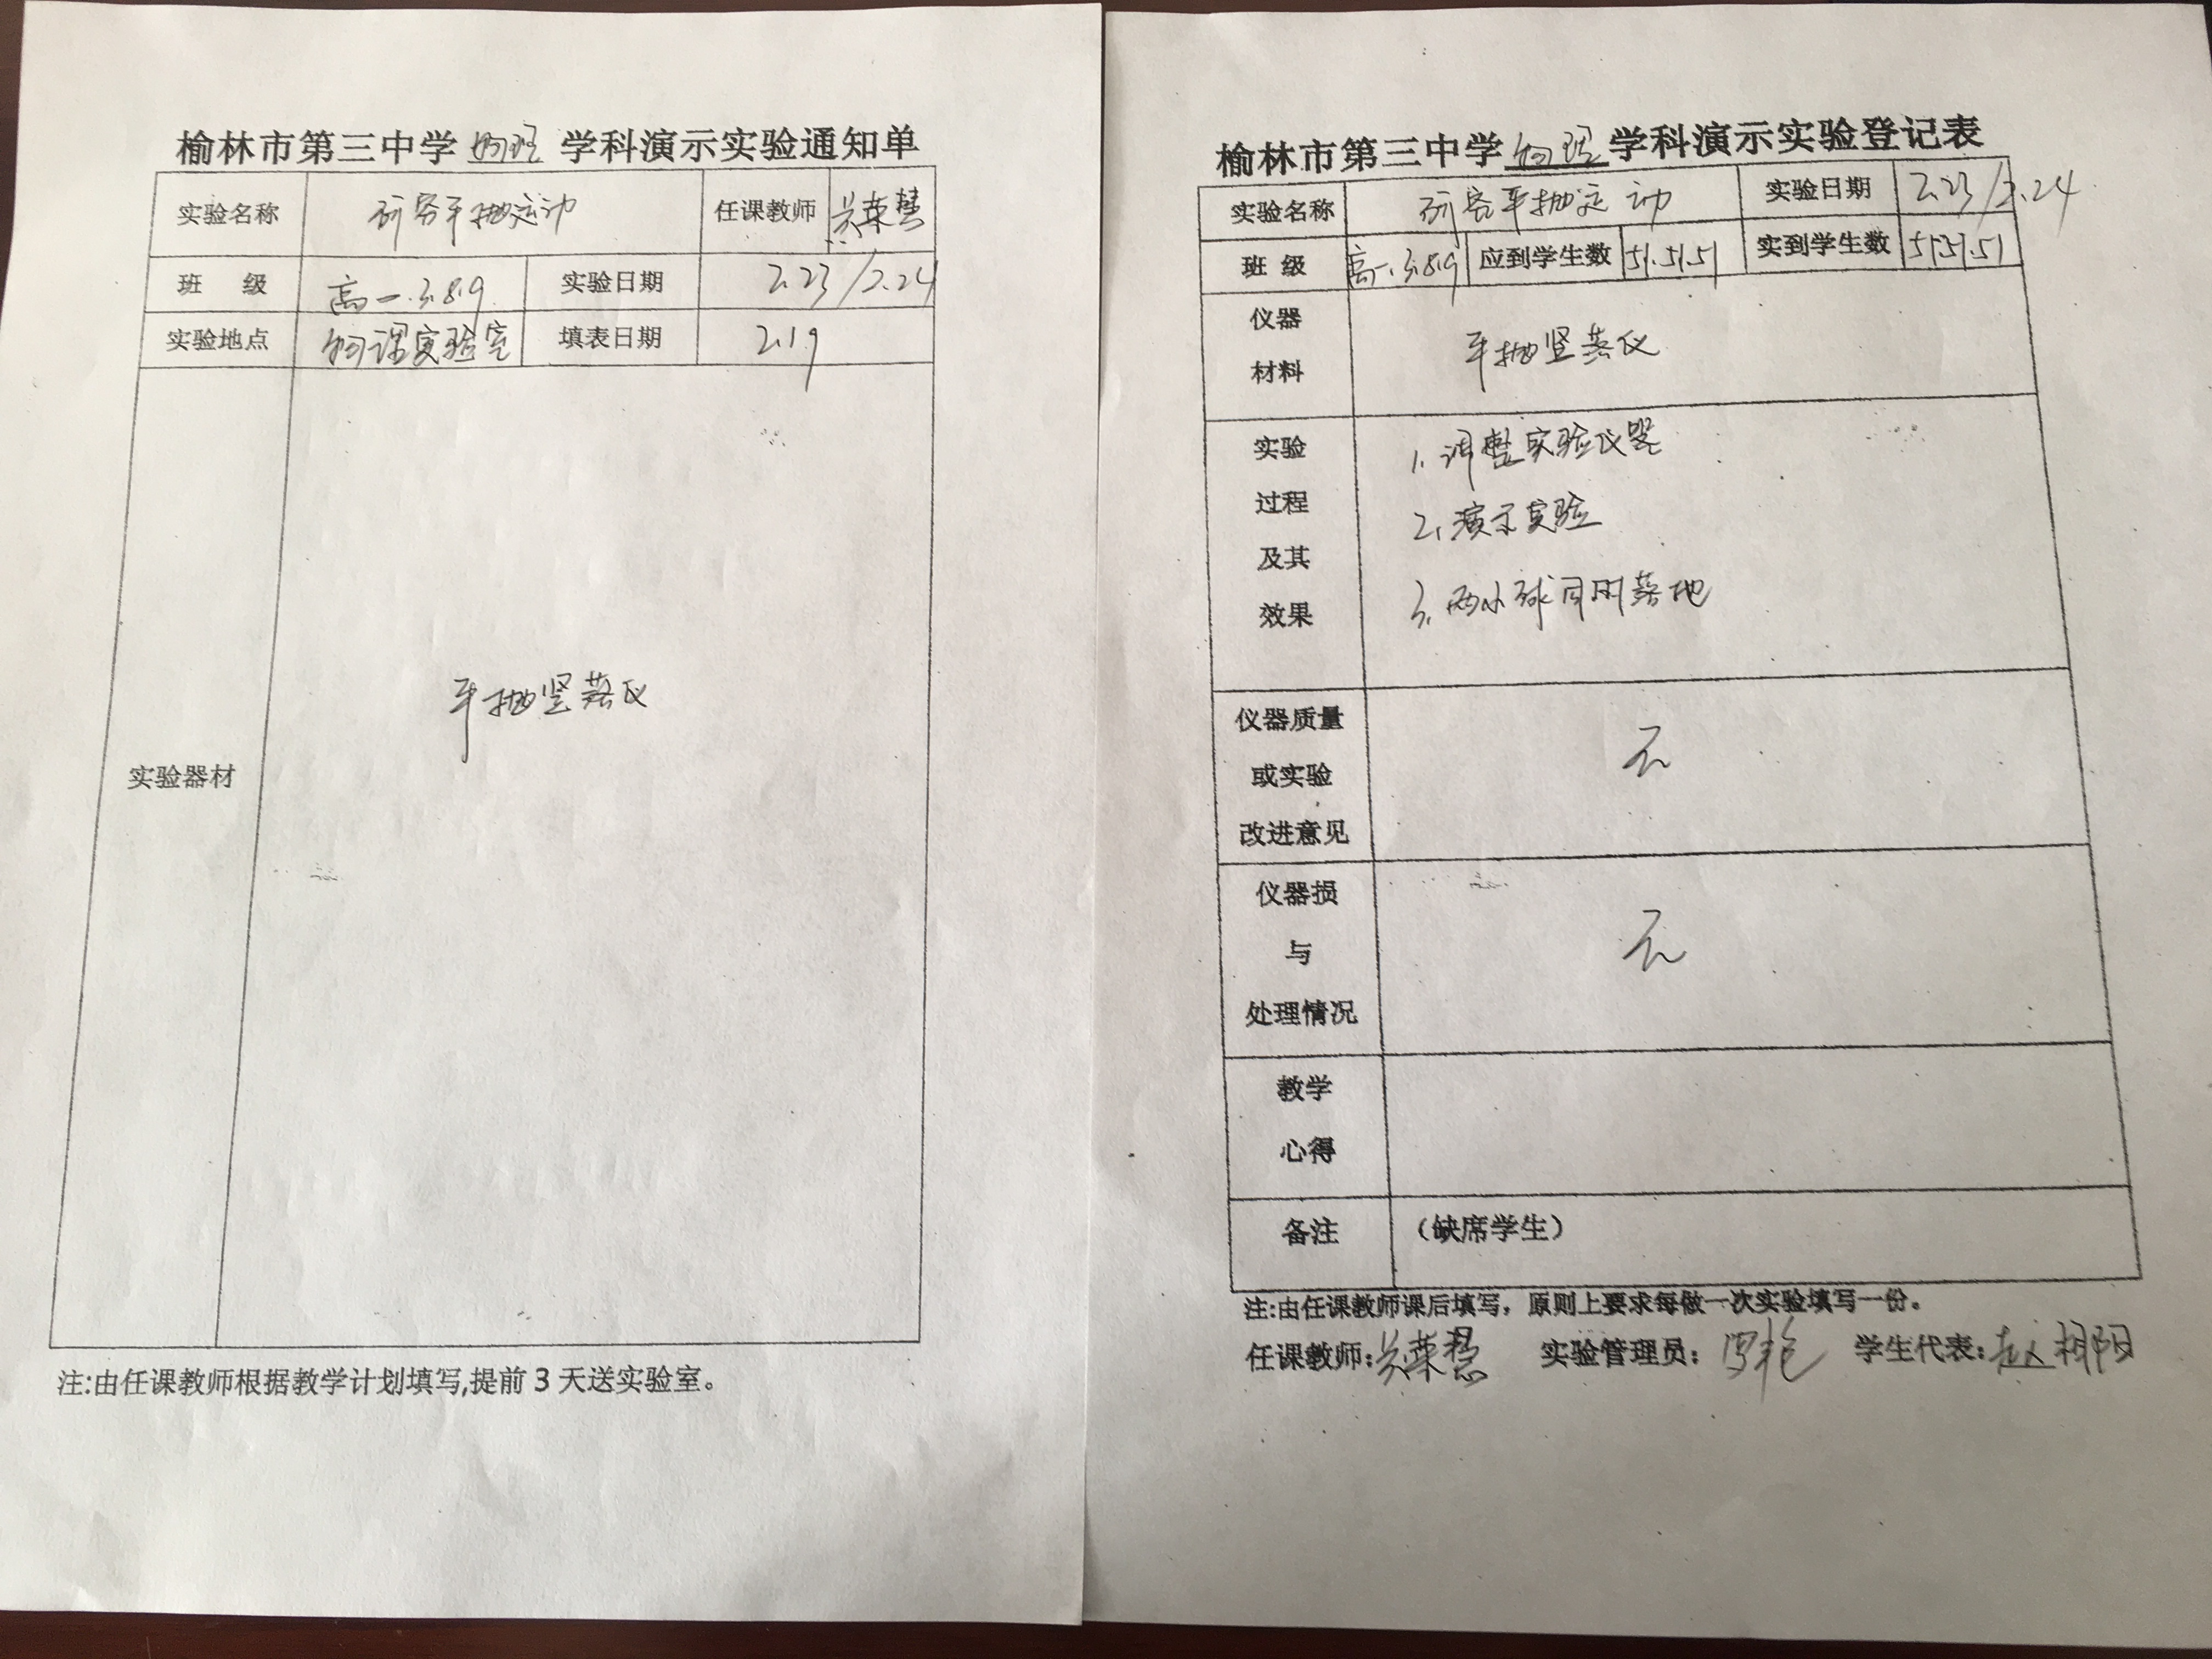 榆林市第三中学 物理 学科演示实验通知单
实验名称 研究平抛运动 任课教师 吴荣慧
班 级 高一.3.8.9 实验日期 2.23/2.24
实验地点 物理实验室 填表日期 2.19
实验器材 平抛竖落仪
注:由任课教师根据教学计划填写,提前3天送实验室。
榆林市第三中学 物理 学科演示实验登记表
实验名称 研究平抛运动 实验日期 2.23/2.24
班 级 高一.3.8.9 应到学生数 51.51.51 实到学生数 51.51.51
仪器
材料
平抛竖落仪
实验
过程
及其
效果
1.调整实验仪器
2.演示实验
3.两小球同时落地
仪器质量
或实验
改进意见
无
仪器损
与
处理情况
无
教学
心得
备注 （缺席学生）
注:由任课教师课后填写，原则上要求每做一次实验填写一份。
任课教师:吴荣慧 实验管理员: 学生代表: